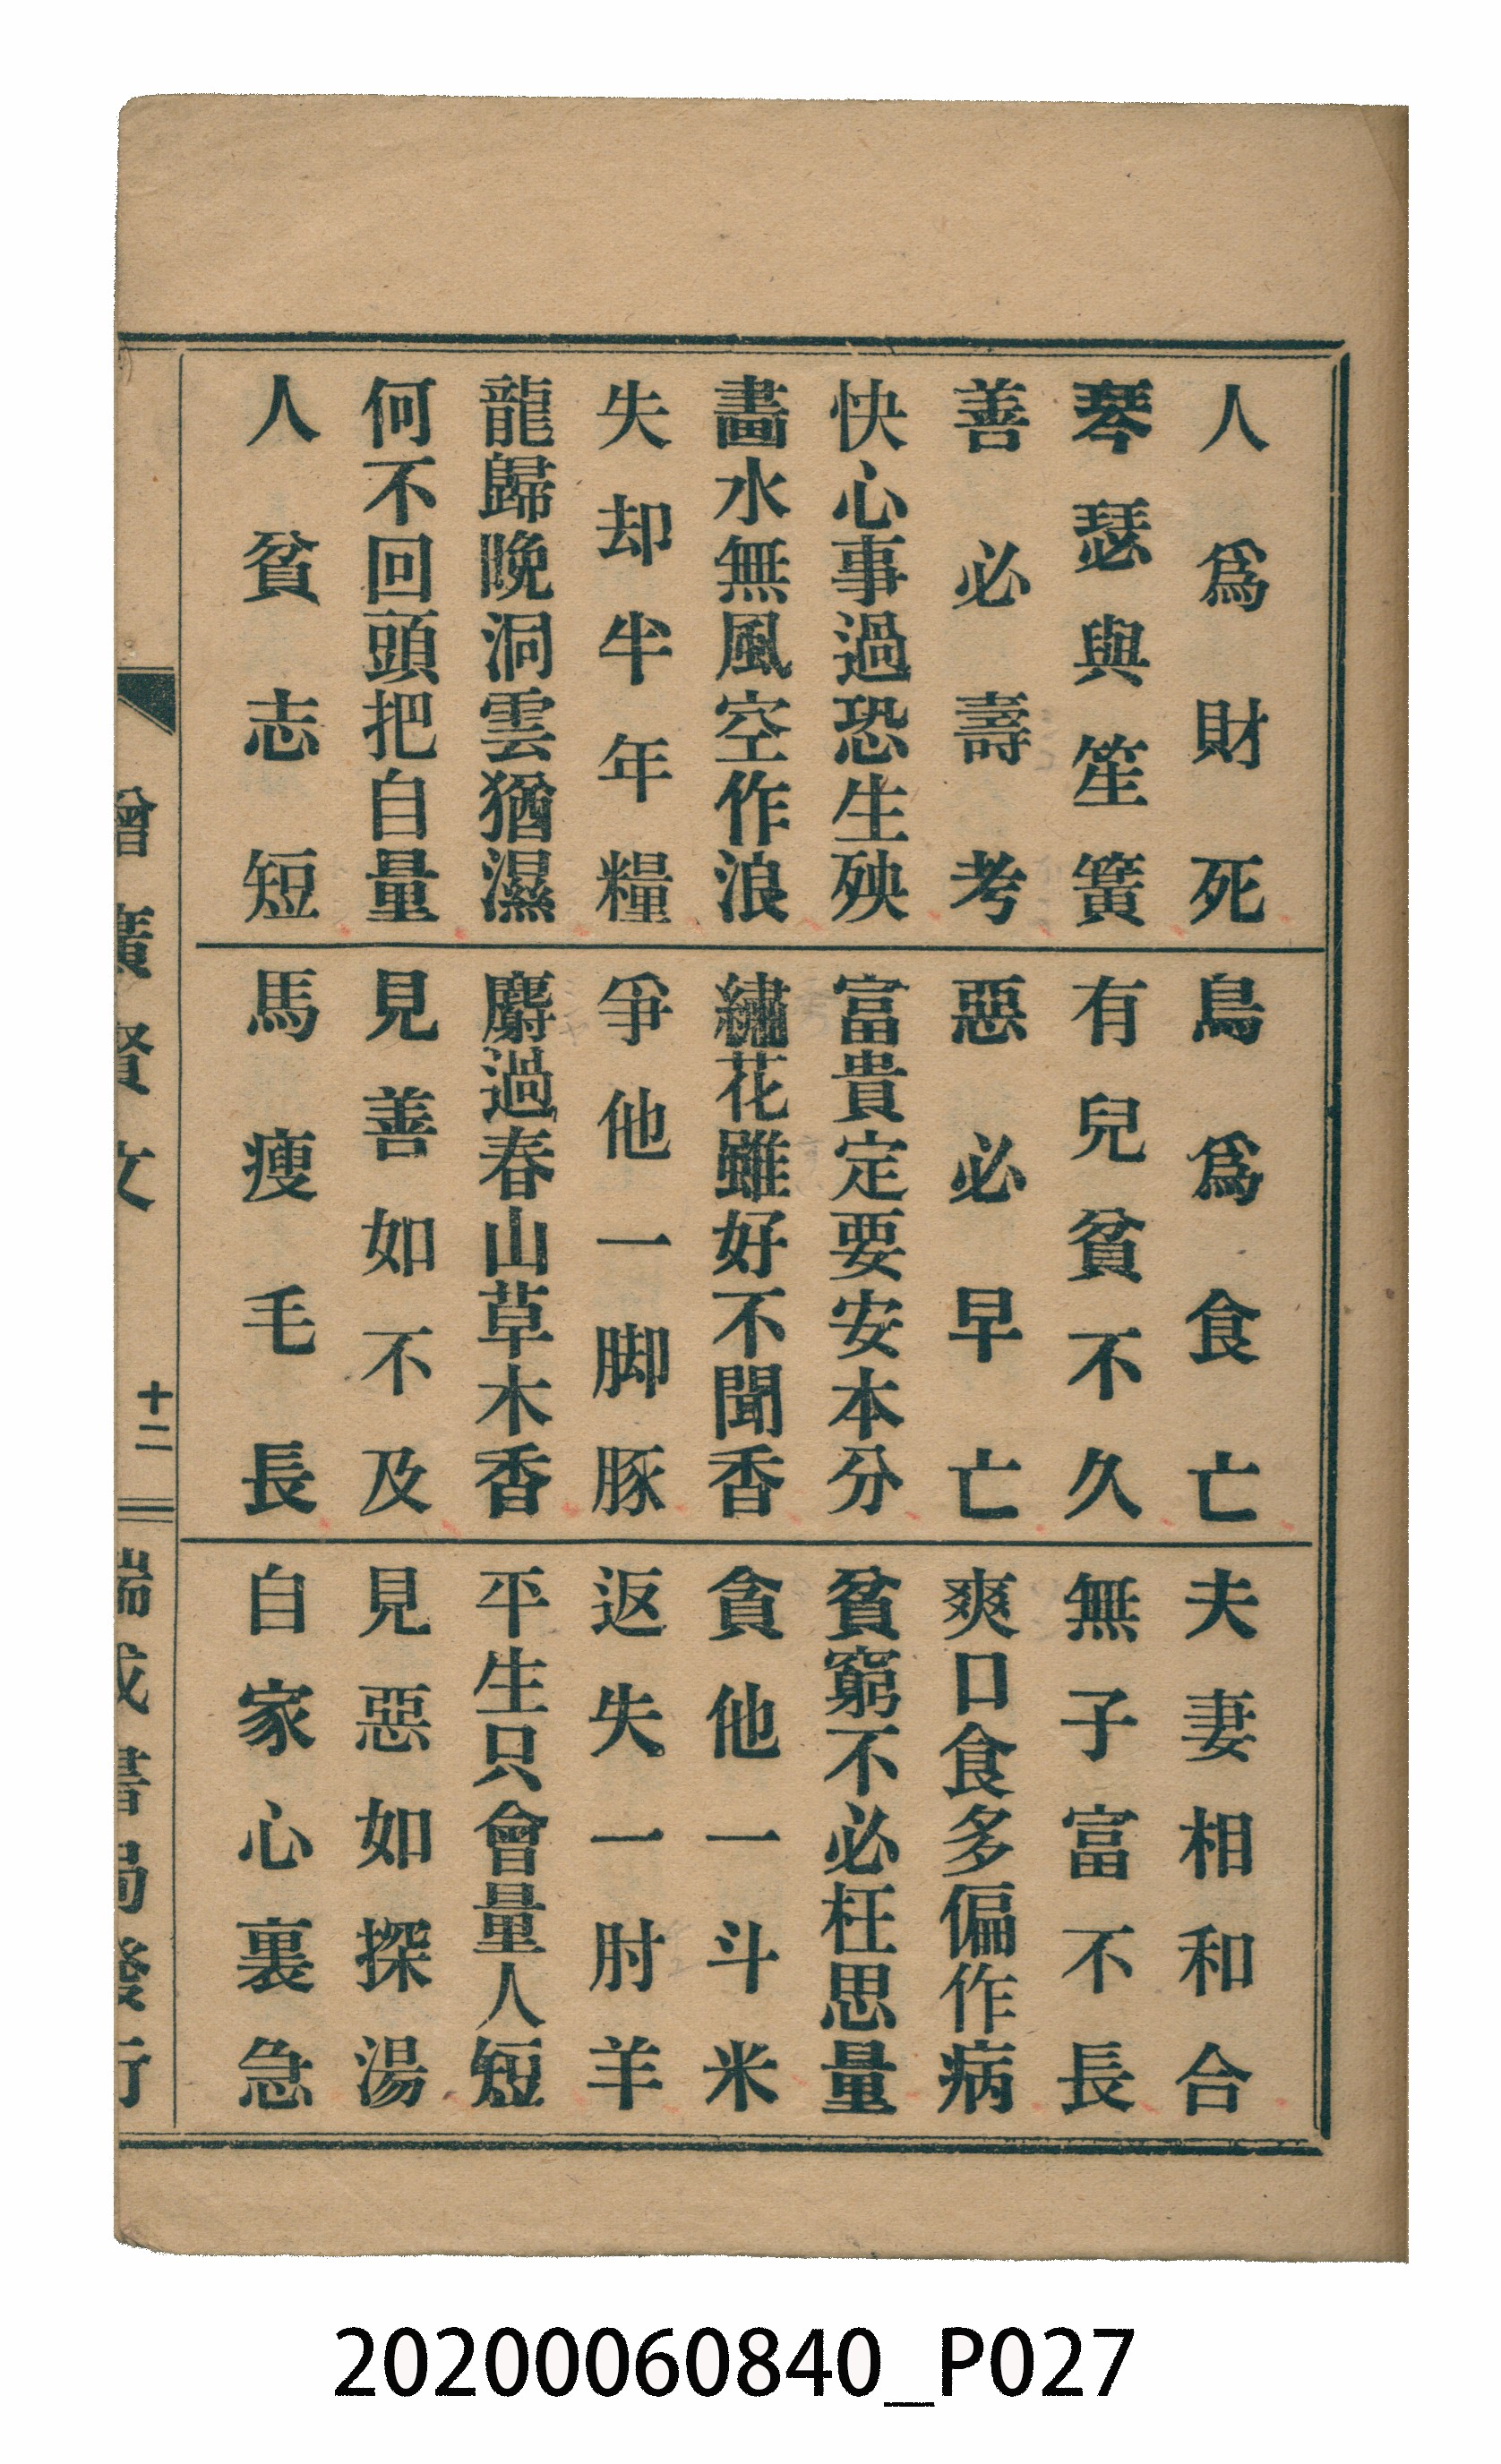 人爲財死
鳥爲食亡
夫妻相和合
琴瑟與笙簧
有兒貧不久
無子富不長
善必壽考
惡必早亡
爽口食多偏作病
快心事過恐生殃
富貴定要安本分
貧窮不必枉思量
畫水無風空作浪
繡花雖好不聞香
貪他一斗米
失却半年糧
爭他一脚豚
返失一肘羊
龍歸晚洞雲猶濕
麝過春山草木香
平生只會量人短
何不回頭把自量
見善如不及
見惡如探湯
人貧志短
馬瘦毛長
自家心裏急
增廣賢文
十二
瑞成書局發行
20200060840_P027